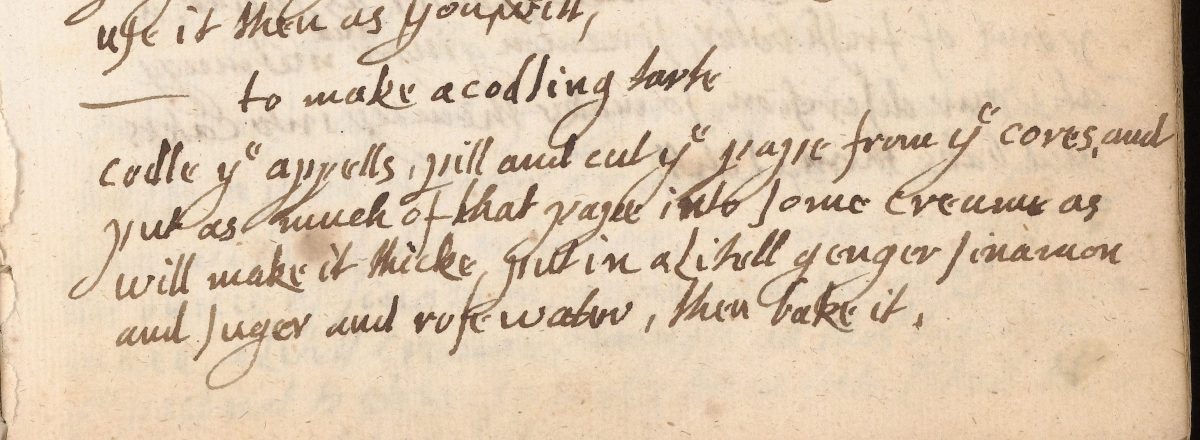 use it then as you will,
to make a codling tarte
codle yᵉ appells, pill and cut yᵉ pape from yᵉ cores, and
put as much of that pape into some creame as
will make it thicke, put in a litell genger sinamon
and suger and rose water, then bake it.